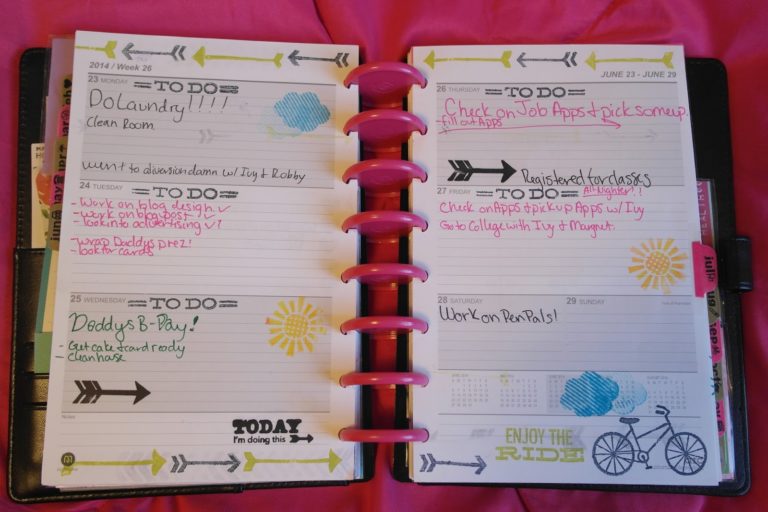 2014 / Week 26
23 MONDAY
TO DO
Do Laundry!!!!
Clean Room
went to diversion damn w/ Ivy & Robby
24 TUESDAY
TO DO
- Work on blog design ✓
- work on blog post ✓
- look into advertising ✓?
- wrap Daddys prez!
- look for cards
25 WEDNESDAY
TO DO
Daddys B-Day!
Get cake & card ready
clean house
Notes
TODAY
I'm doing this
JUNE 23 - JUNE 29
26 THURSDAY
TO DO
Check on Job Apps & pick some up.
- fill out Apps
Registered for classes
27 FRIDAY
TO DO
All Nighter!!
Check on Apps & pick up Apps w/ Ivy
Go to College with Ivy & Margret.
28 SATURDAY
29 SUNDAY
Work on Pen Pals!
ENJOY THE
RIDE